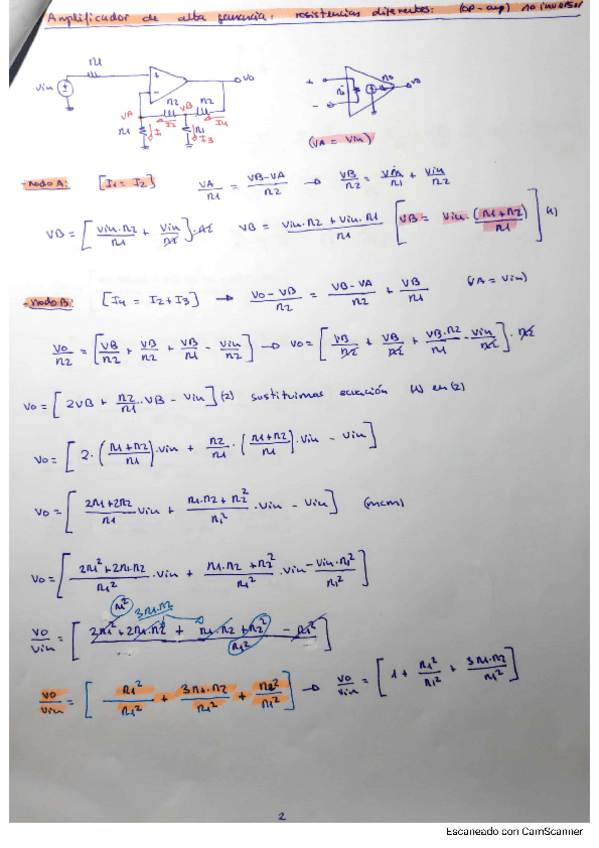 Amplificador de alta ganancia: resistencias diferentes: (op-amp) no inversor
R1
Vin
+
-
Vo
VA R2 VB R2
I2 I4
R1 I1 R1 I3
+
-
Ri
Ro
Vo
(VA = Vin)
-nodo A: [I1 = I2] VA/R1 = VB-VA/R2 → VB/R2 = Vin/R1 + Vin/R2
VB = [Vin·R2/R1 + Vin/R2]·R2 VB = Vin·R2 + Vin·R1/R1 [VB = Vin·(R1+R2)/R1] (1)
-nodo B: [I4 = I2+I3] → Vo-VB/R2 = VB-VA/R2 + VB/R1 (VA = Vin)
Vo/R2 = [VB/R2 + VB/R2 + VB/R1 - Vin/R2] → Vo = [VB/R2 + VB/R2 + VB·R2/R1 - Vin/R2]·R2
Vo = [2VB + R2/R1·VB - Vin] (2) sustituimos ecuación (1) en (2)
Vo = [2·(R1+R2/R1)·Vin + R2/R1·(R1+R2/R1)·Vin - Vin]
Vo = [2R1+2R2/R1 Vin + R1·R2+R2²/R1²·Vin - Vin] (mcm)
Vo = [2R1²+2R1·R2/R1²·Vin + R1·R2+R2²/R1²·Vin - Vin·R1²/R1²]
R1²
3R1·R2
Vo/Vin = [2R1²+2R1·R2 + R1·R2+R2² - R1²/R1²]
Vo/Vin = [R1²/R1² + 3R1·R2/R1² + R2²/R1²] → Vo/Vin = [1 + R1²/R1² + 3R1·R2/R1²]
2
Escaneado con CamScanner